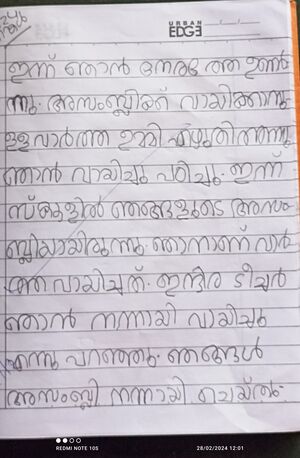 URBAN
EDGE
ഇന്ന് ഞാൻ നേരത്തേ ഉണർ
ന്നു. അസംബ്ലിക്ക് വായിക്കാനു
ള്ള വാർത്ത ഉമ്മി എഴുതിത്തന്നു.
ഞാൻ വായിച്ചു പഠിച്ചു. ഇന്ന്
സ്കൂളിൽ ഞങ്ങളുടെ അസം
ബ്ലിയായിരുന്നു. ഞാനാണ് വാർ
ത്ത വായിച്ചത്. ഇന്ദിര ടീച്ചർ
ഞാൻ നന്നായി വായിച്ചു
എന്നു പറഞ്ഞു. ഞങ്ങൾ
അസംബ്ലി നന്നായി ചെയ്തു.
REDMI NOTE 10S
28/02/2024 12:01